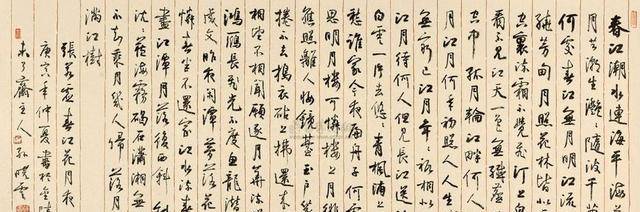 春江潮水連海平海
月共潮生灩灩隨波千
何處春江無月明江流
繞芳甸月照花林皆似
空裏流霜不覺飛汀上
看不見江天一色無纖塵
空中孤月輪江畔何人
月江月何年初照人人生
無窮已江月年年祇相似
江月待何人但見長江送
白雲一片去悠悠青楓浦
愁誰家今夜扁舟子何處
思明月樓可憐樓上月
應照離人妝鏡臺玉戶簾
捲不去搗衣砧上拂還來
相望不相聞願逐月華流
鴻雁長飛光不度魚龍潛
成文昨夜閒潭夢落花
憐春半不還家江水流春
盡江潭落月復西斜
沉沉藏海霧碣石瀟湘無
不知乘月幾人歸落月
滿江樹
張若虛春江花月夜
庚寅年仲夏書於金陵
未了齋主人孫曉雲